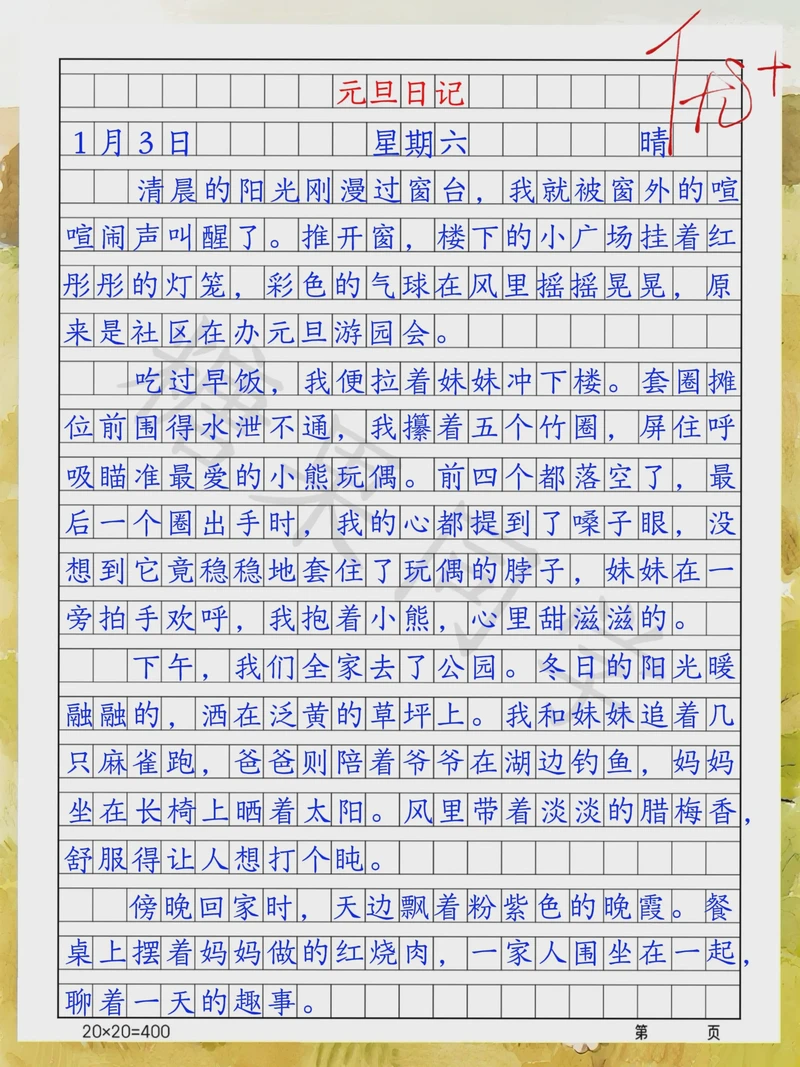 元旦日记
优+
1月3日 星期六 晴
清晨的阳光刚漫过窗台，我就被窗外的喧
喧闹声叫醒了。推开窗，楼下的小广场挂着红
彤彤的灯笼，彩色的气球在风里摇摇晃晃，原
来是社区在办元旦游园会。
吃过早饭，我便拉着妹妹冲下楼。套圈摊
位前围得水泄不通，我攥着五个竹圈，屏住呼
吸瞄准最爱的小熊玩偶。前四个都落空了，最
后一个圈出手时，我的心都提到了嗓子眼，没
想到它竟稳稳地套住了玩偶的脖子，妹妹在一
旁拍手欢呼，我抱着小熊，心里甜滋滋的。
下午，我们全家去了公园。冬日的阳光暖
融融的，洒在泛黄的草坪上。我和妹妹追着几
只麻雀跑，爸爸则陪着爷爷在湖边钓鱼，妈妈
坐在长椅上晒着太阳。风里带着淡淡的腊梅香，
舒服得让人想打个盹。
傍晚回家时，天边飘着粉紫色的晚霞。餐
桌上摆着妈妈做的红烧肉，一家人围坐在一起，
聊着一天的趣事。
20×20=400 第 页
糖果同学